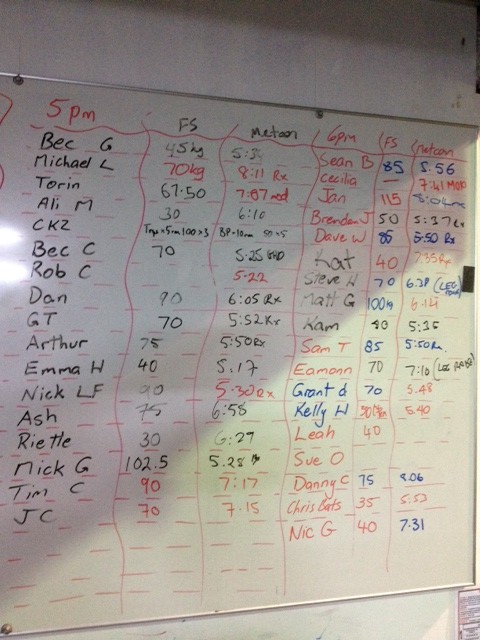 5pm FS Metcon
Bec G 45kg 5:34
Michael L 70kg 8:11 Rx
Torin 67.50 7:07 mod
Ali M 30 6:10
CKZ
Bec C 70 5:25
Rob C 5:22
Dan 90 6:05 Rx
GT 70 5:52 Rx
Arthur 75 5:50 Rx
Emma H 40 5.17
Nick LF 90 5:30 Rx
Ash 75 6:58
Rielle 30 6:27
Mick G 102.5 5.28
Tim C 90 7:17
JC 70 7.15
6pm FS Metcon
Sean B 85 5:56
Cecilia — 7:41
Jan 115
Brendan J 50 5:37 Rx
Dave W 85 5:50 Rx
Kat 40 7:35 Rx
Steve H 70 6.38
Matt G 100kg 6:14
Kam 80 5:35
Sam T 85 5:50 Rx
Eamonn 70 7:10
Grant d 70 5.48
Kelly H 5.40
Leah 40
Sue O
Danny C 75 8.06
Chris Bats 35 5:53
Nic G 40 7.31